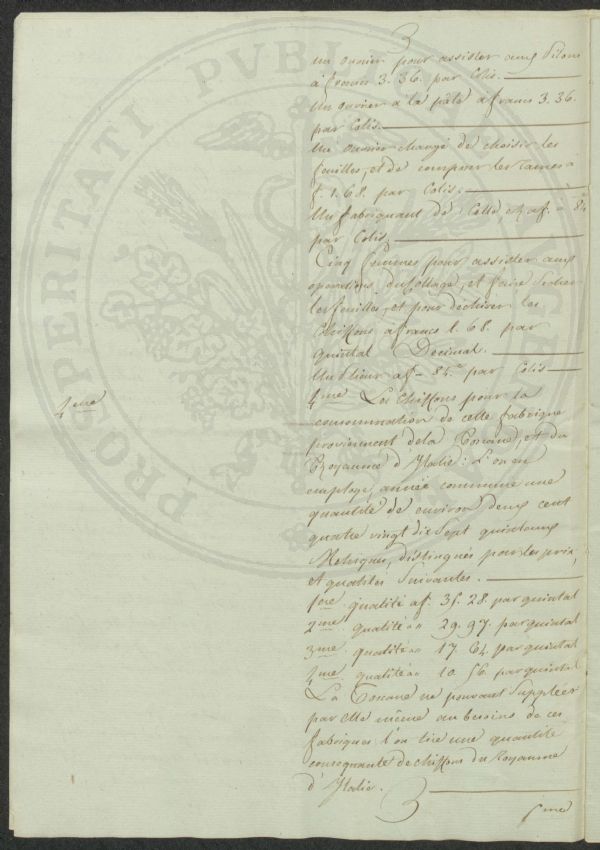 3
un ouvrier pour assister aux Pilons
à francs 3. 36. par Colis.
Un ouvrier à la pâte à francs 3. 36.
par Colis.
Un ouvrier chargé de choisir les
feuilles, et de composer les rames à
f. 1. 68. par Colis.
Un fabriquant de Colle, à f. = 84
par Colis.
Cinq femmes pour assister aux
operations du Collage, et faire secher
les feuilles, et pour déchirer les
Chiffons à francs 1. 68. par
quintal Decimal.
Un Lieur a f = 84.c par Colis
4eme
4me Les Chiffons pour la
consommation de cette fabrique
proviennent de la Toscane, et du
Royaume d'Italie: L'on en
employe, année commune une
quantité de environ deux cent
quatre vingt dix sept quintaux
Metriques, distingués par les prix,
et qualités Suivantes.
1ere qualité a f. 35. 28. par quintal
2me qualité = " 29. 97. par quintal
3me qualité = " 17. 64. par quintal
4me qualité = " 10. 56. par quintal
La Toscane ne pouvant Suppleer
par elle même au besoins de ces
fabriques l'on tire une quantité
consequante de chiffons du Royaume
d'Italie.
5me
PROSPERITATI PUBLICAE